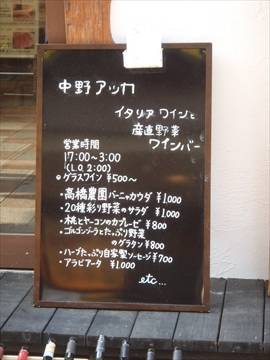 中野アッカ
イタリア ワインと
産直野菜
ワインバー
営業時間
17:00〜3:00
(L.O 2:00)
・グラスワイン ¥500〜
・高橋農園バーニャカウダ ¥1,000
・20種彩り野菜のサラダ ¥1,000
・桃とヤーコンのカプレーゼ ¥800
・ゴルゴンゾーラとたっぷり野菜
のグラタン ¥800
・ハーブたっぷり自家製ソーセージ ¥700
・アラビアータ ¥1,000
etc...